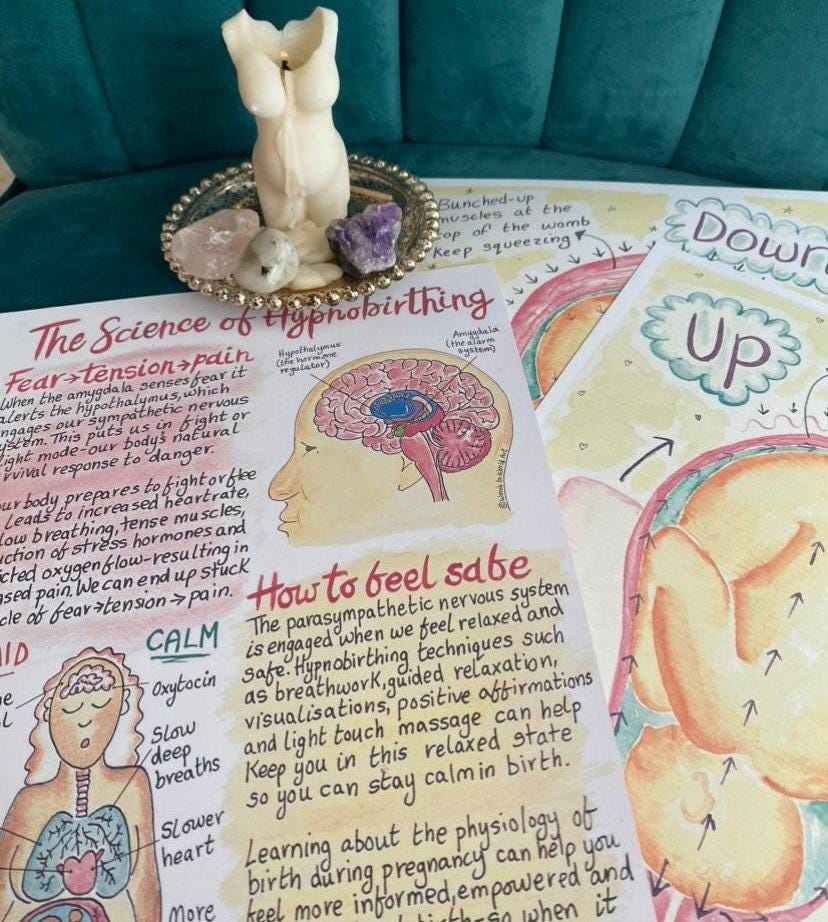 Bunched-up
muscles at the
top of the womb
keep squeezing
Down
Up
The Science of Hypnobirthing
Fear→tension→pain
When the amygdala senses fear it
alerts the hypothalymus, which
engages our sympathetic nervous
system. This puts us in fight or
flight mode-our body's natural
survival response to danger.
Our body prepares to fight or flee
Leads to increased heartrate,
low breathing, tense muscles,
uction of stress hormones and
icted oxygen flow-resulting in
ased pain. We can end up stuck
cle of fear→tension→pain.
Hypothalymus
(the hormone
regulator)
Amygdala
(the alarm
system)
How to feel safe
The parasympathetic nervous system
is engaged when we feel relaxed and
safe. Hypnobirthing techniques such
as breathwork, guided relaxation,
visualisations, positive affirmations
and light touch massage can help
Keep you in this relaxed state
so you can stay calm in birth.
Learning about the physiology of
birth during pregnancy can help you
feel more informed, empowered and
so when it
CALM
Oxytocin
Slow
deep
breaths
Slower
heart
More